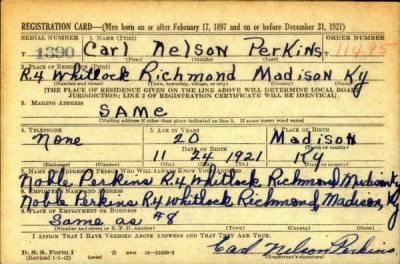 REGISTRATION CARD—(Men born on or after February 17, 1897 and on or before December 31, 1921)
SERIAL NUMBER 1. NAME (Print) ORDER NUMBER
T 1390 Carl Nelson Perkins 1495
(First) (Middle) (Last)
2. PLACE OF RESIDENCE (Print)
R.4 Whitlock Richmond Madison Ky
(Number and street) (Town, township, village, or city) (County) (State)
[THE PLACE OF RESIDENCE GIVEN ON THE LINE ABOVE WILL DETERMINE LOCAL BOARD
JURISDICTION; LINE 2 OF REGISTRATION CERTIFICATE WILL BE IDENTICAL]
3. MAILING ADDRESS
SAME
[Mailing address if other than place indicated on line 2. If same insert word same]
4. TELEPHONE 5. AGE IN YEARS 6. PLACE OF BIRTH
None 20 Madison
DATE OF BIRTH (Town or county)
11 24 1921 Ky
(Exchange) (Number) (Mo.) (Day) (Yr.) (State or country)
7. NAME AND ADDRESS OF PERSON WHO WILL ALWAYS KNOW YOUR ADDRESS
Noble Perkins R.4 Whitlock Richmond Madison Ky
8. EMPLOYER'S NAME AND ADDRESS
Noble Perkins R4 Whitlock Richmond, Madison, Ky
9. PLACE OF EMPLOYMENT OR BUSINESS
Same as #8
(Number and street or R. F. D. number) (Town) (County) (State)
I AFFIRM THAT I HAVE VERIFIED ABOVE ANSWERS AND THAT THEY ARE TRUE.
D. S. S. Form 1
(Revised 1-1-42) (over)
Carl Nelson Perkins
(Registrant's signature)